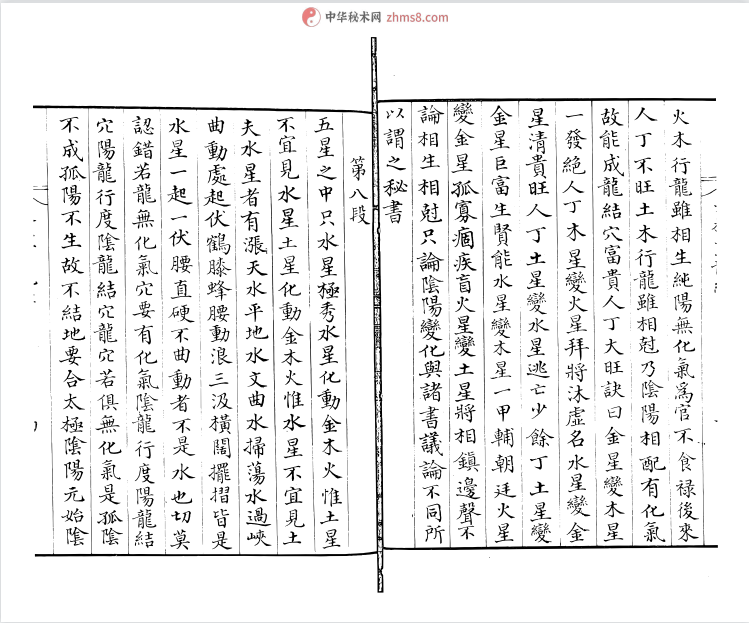 中华秘术网 zhms8.com
火木行龍雖相生純陽無化氣為官不食禄後來
人丁不旺土木行龍雖相尅乃陰陽相配有化氣
故能成龍結穴富貴人丁大旺訣曰金星變木星
一發絕人丁木星變火星拜將沐虛名水星變金
星清貴旺人丁土星變水星逃亡少餘丁土星變
金星巨富生賢能水星變木星一甲輔朝廷火星
變金星孤寡痼疾盲火星變土星將相鎮邊聲不
論相生相尅只論陰陽變化與諸書議論不同所
以謂之秘書
第八段
五星之中只水星極秀水星化動金木火惟土星
不宜見水星土星化動金木火惟水星不宜見土
夫水星者有漲天水平地水文曲水掃蕩水過峽
曲動處起伏鶴膝蜂腰動浪三汲橫闊擺摺皆是
水星一起一伏腰直硬不曲動者不是水也切莫
認錯若龍無化氣穴要有化氣陰龍行度陽龍結
穴陽龍行度陰龍結穴龍穴若俱無化氣是孤陰
不成孤陽不生故不結地要合太極陰陽元始陰